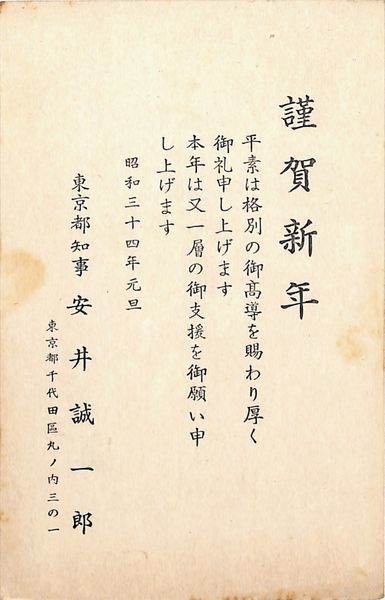 謹賀新年
平素は格別の御高導を賜わり厚く
御礼申し上げます
本年は又一層の御支援を御願い申
し上げます
昭和三十四年元旦
東京都知事 安井誠一郎
東京都千代田區丸ノ内三の一